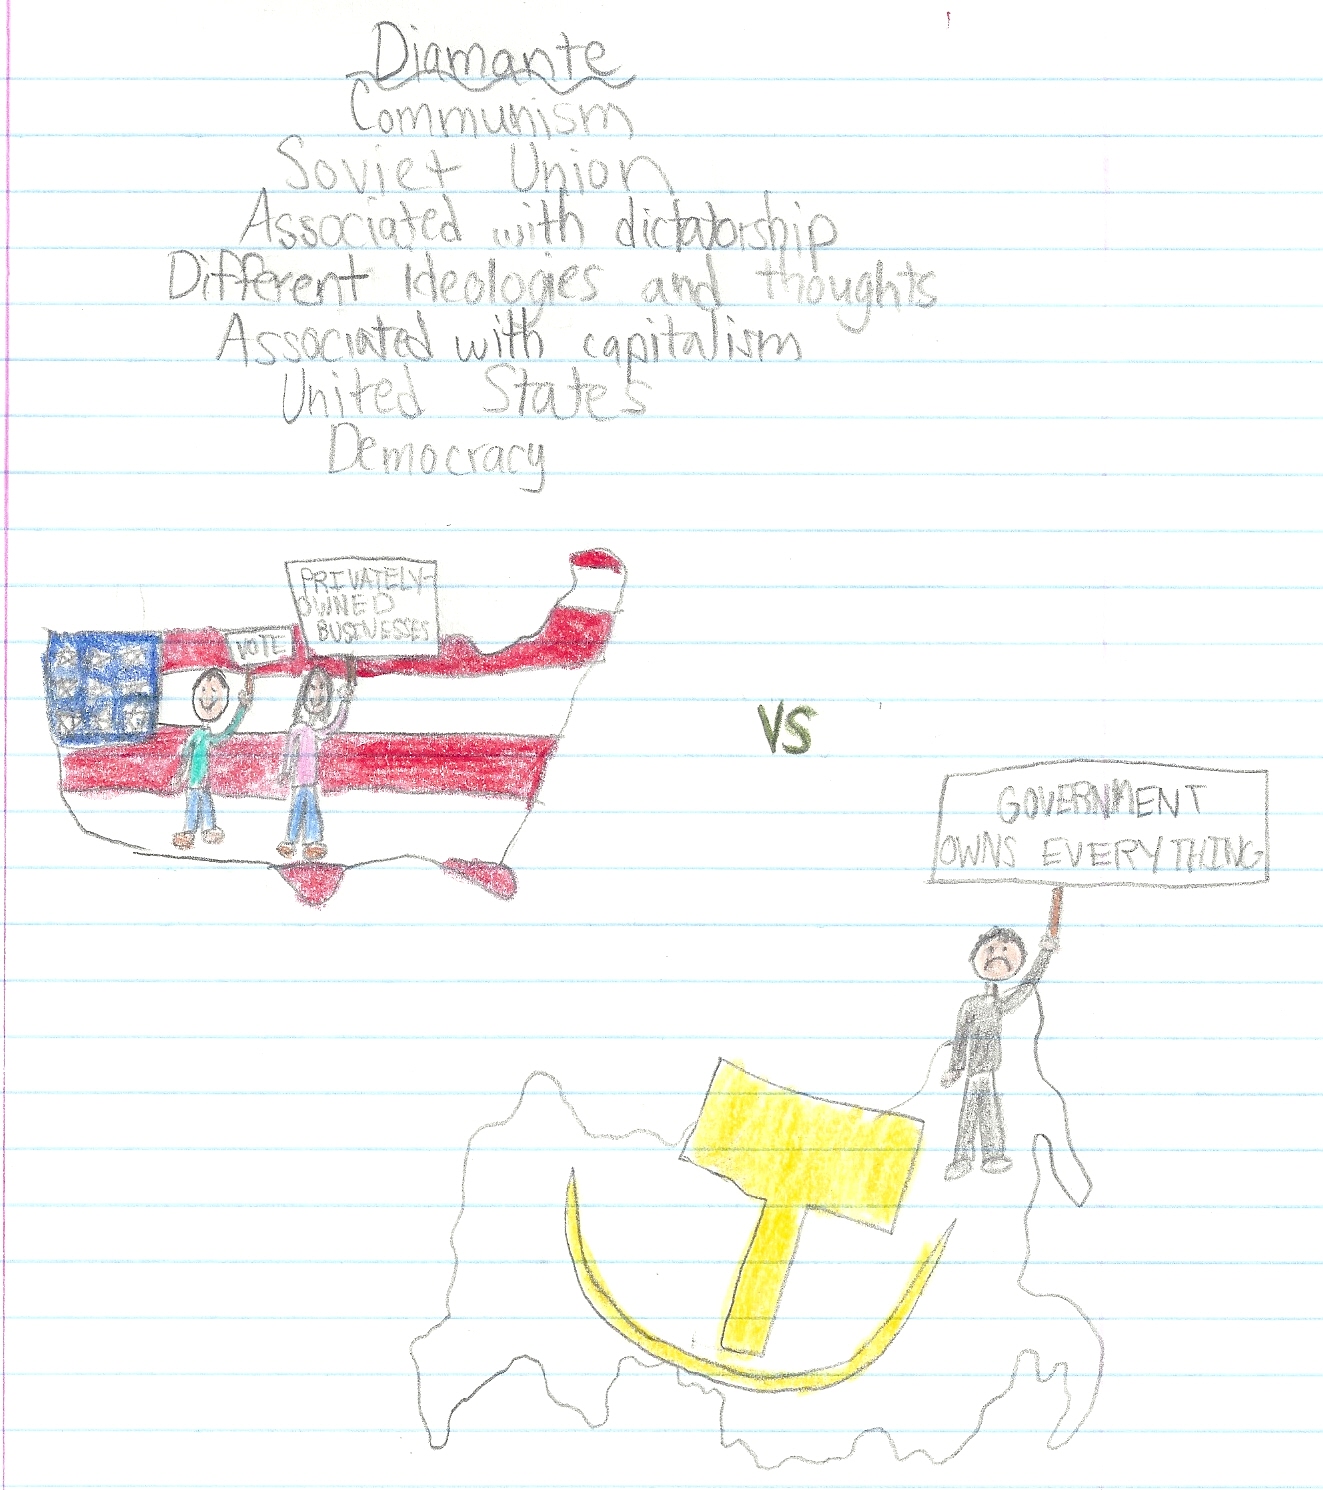 Diamante
Communism
Soviet Union
Associated with dictatorship
Different Ideologies and thoughts
Associated with capitalism
United States
Democracy
PRIVATELY-
OWNED
BUSINESSES
VOTE
VS
GOVERNMENT
OWNS EVERYTHING